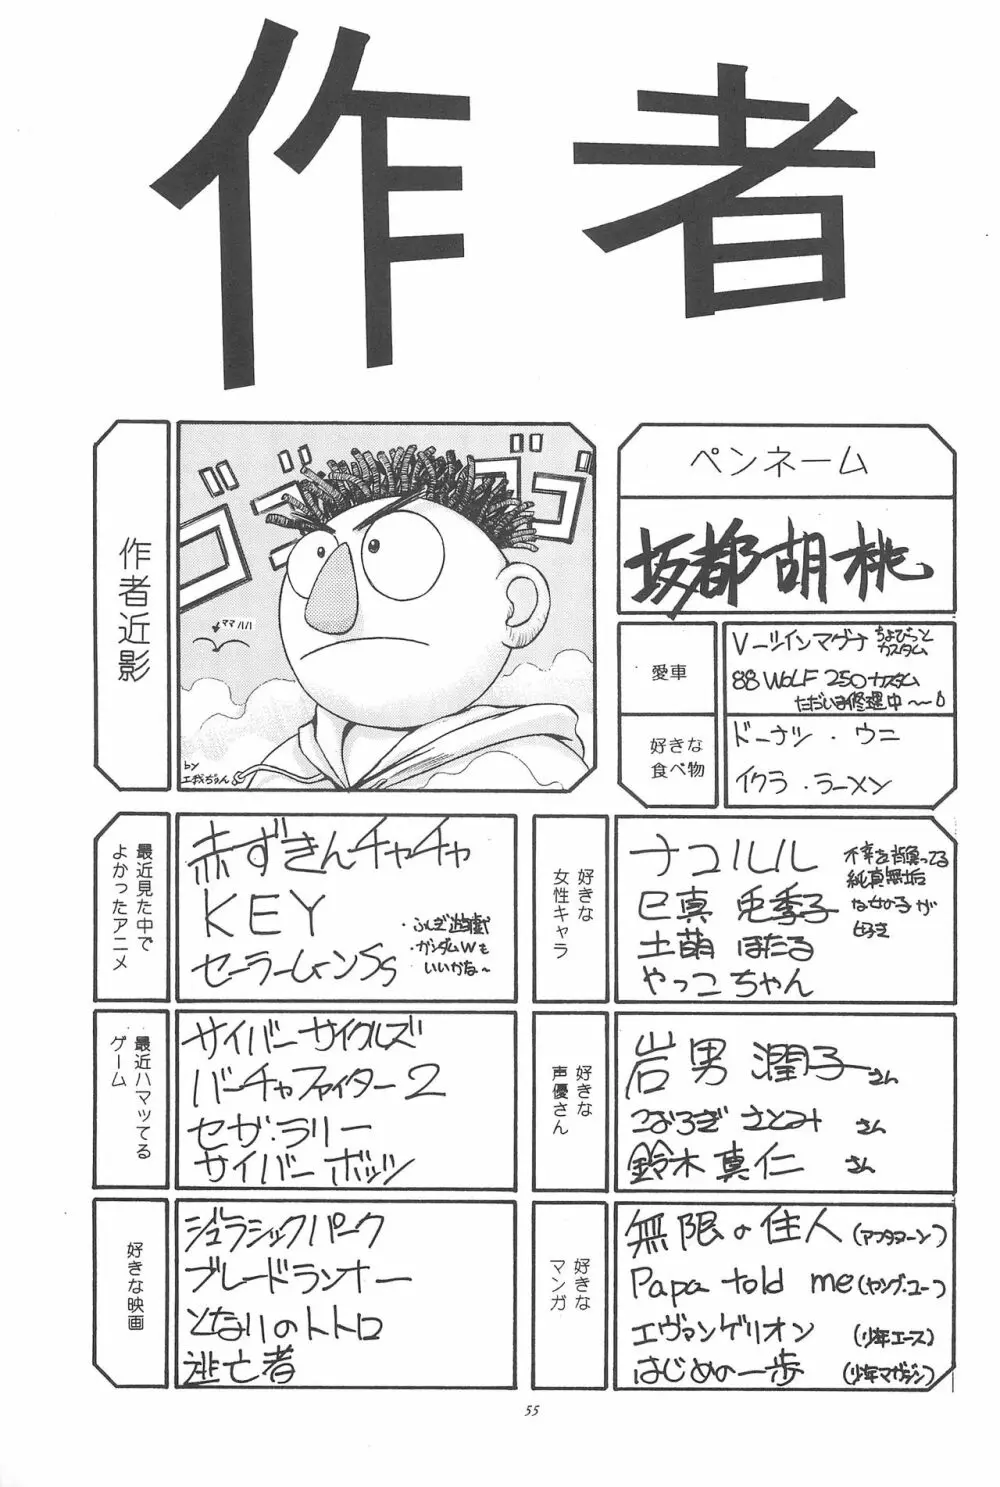 作者
作者近影
ゴゴゴゴ
ママ ハハ
by
ペンネーム
坂都胡桃
愛車
V-ツインマグナ ちょびっとカスタム
88 WOLF 250カスタム
ただいま修理中〜
好きな
食べ物
ドーナツ・ウニ
イクラ・ラーメン
最近見た中で
よかったアニメ
赤ずきんチャチャ
KEY
セーラームーンSs
・ふしぎ遊戯
・ガンダムWも
いいかな〜
好きな
女性キャラ
ナコルル
巳真 兎季子
土萌 ほたる
やっこちゃん
不幸を背負ってる
純真無垢
な女の子が
好き
最近ハマッてる
ゲーム
サイバーサイクルズ
バーチャファイター2
セガ・ラリー
サイバーボッツ
好きな
声優さん
岩男潤子さん
こおろぎさとみ さん
鈴木真仁 さん
好きな映画
ジュラシックパーク
ブレードランナー
となりのトトロ
逃亡者
好きな
マンガ
無限の住人(アフタヌーン)
Papa told me(ヤング・ユー)
エヴァンゲリオン (少年エース)
はじめの一歩 (少年マガジン)
55